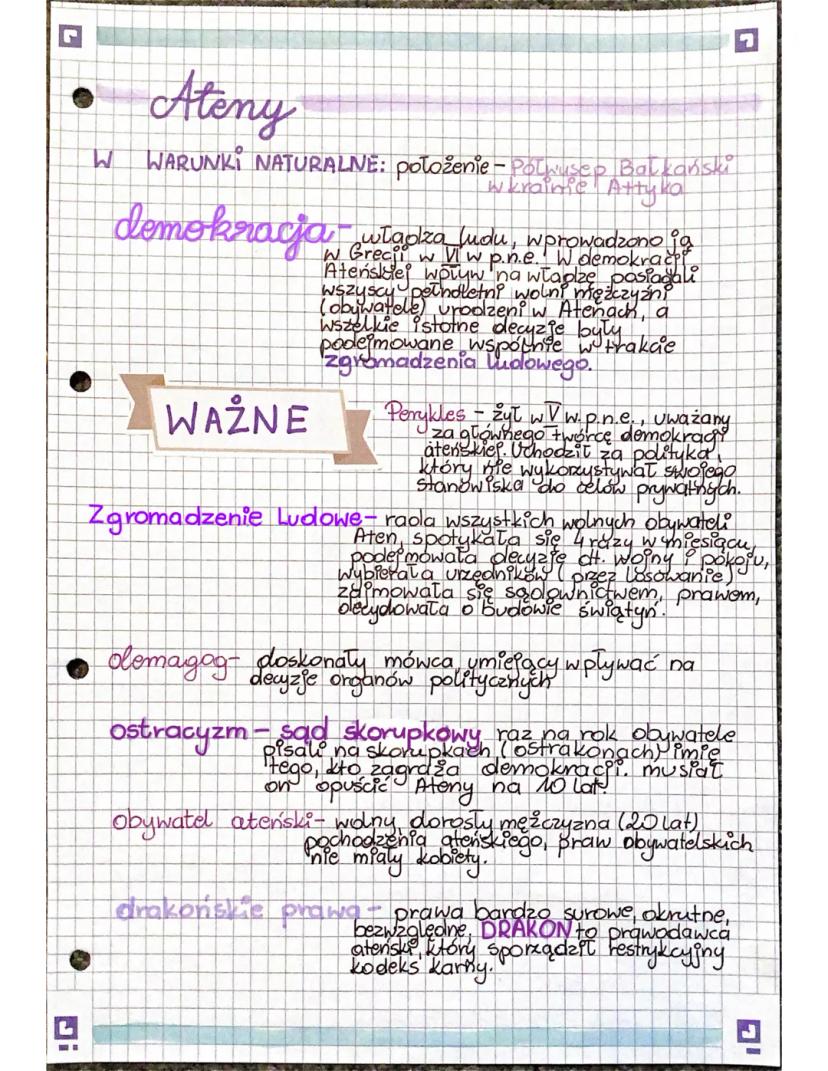 Ateny
W WARUNKI NATURALNE: położenie – Półwysep Bałkański
w krainie Attyka
demokracja – władza ludu, wprowadzono ją
w Grecji w VI w p.n.e. W demokracji
Ateńskiej wpływ na władzę posiadali
wszyscy pełnoletni wolni mężczyźni
(obywatele) urodzeni w Atenach, a
wszelkie istotne decyzje były
podejmowane wspólnie w trakcie
zgromadzenia ludowego.
WAŻNE
Perykles – żył w V w. p.n.e., uważany
za głównego twórcę demokracji
ateńskiej. Uchodził za polityka,
który nie wykorzystywał swojego
stanowiska do celów prywatnych.
Zgromadzenie Ludowe – rada wszystkich wolnych obywateli
Aten, spotykała się 4 razy w miesiącu,
podejmowała decyzje dt. wojny i pokoju,
wybierała urzędników (przez losowanie)
zajmowała się sądownictwem, prawem,
decydowała o budowie świątyń.
demagog – doskonały mówca, umiejący wpływać na
decyzje organów politycznych
ostracyzm – sąd skorupkowy, raz na rok obywatele
pisali na skorupkach (ostrakonach) imię
tego, kto zagraża demokracji. musiał
on opuścić Ateny na 10 lat.
obywatel ateński – wolny, dorosły mężczyzna (20 lat)
pochodzenia ateńskiego, praw obywatelskich
nie miały kobiety.
drakońskie prawa – prawa bardzo surowe, okrutne,
bezwzględne, DRAKON to prawodawca
ateński, który sporządził restrykcyjny
kodeks karny.